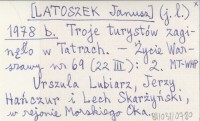 [LATOSZEK Janusz] (j. l.)
1978 b. Troje turystów zagi-
nęło w Tatrach. – Życie War-
szawy nr 69 (22 III): 2. MT-WHP
Urszula Lubiarz, Jerzy
Hańczur i Lech Skarżyński,
w rejonie Morskiego Oka.